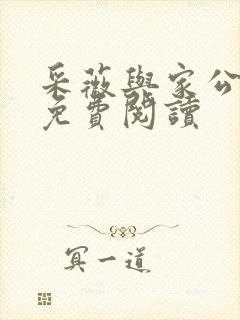 采薇與家公
免費閱讀
冥一道